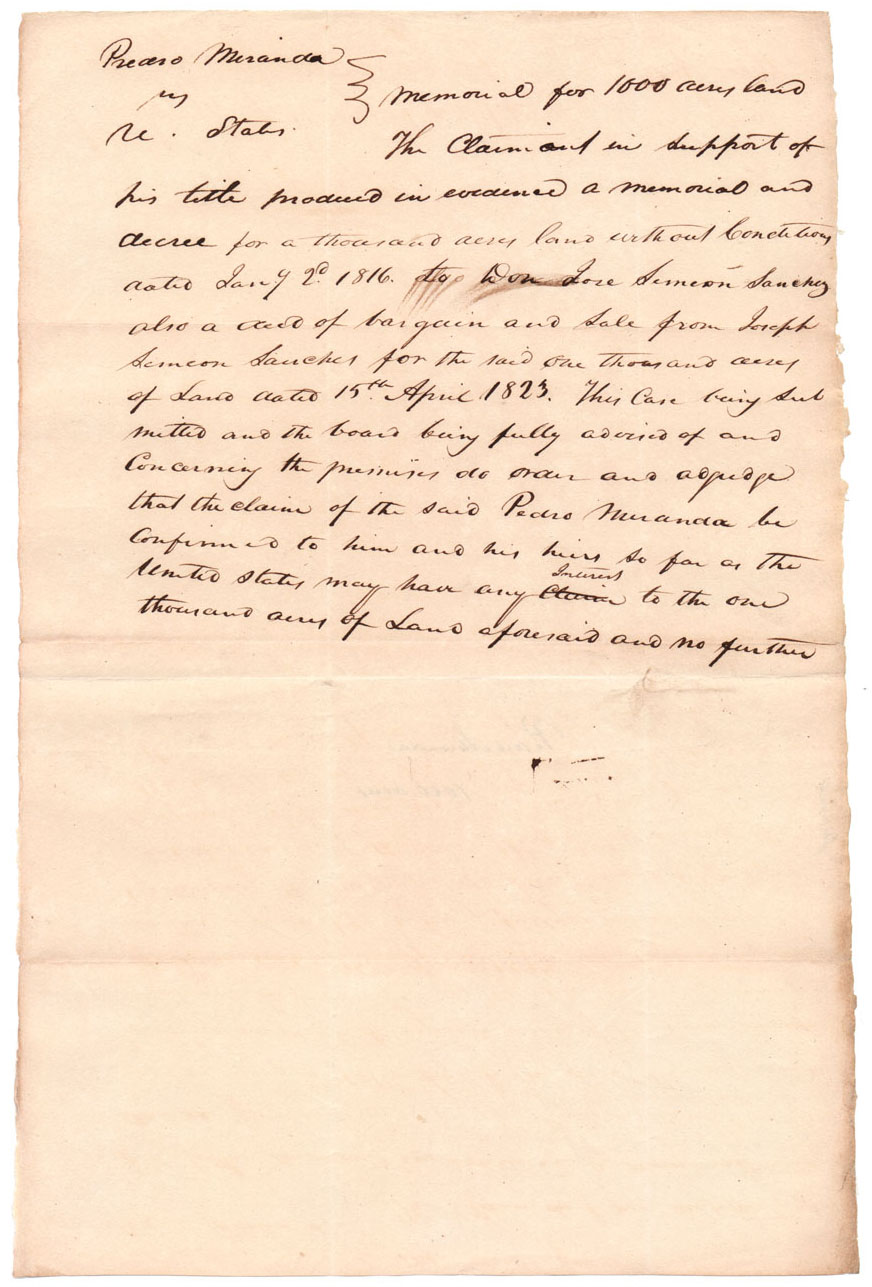 Predro Miranda
vs
U. States.
Memorial for 1000 acres land
The Claimant in support of
his title produced in evidence a memorial and
decree for a thousand acres land without Conditions
dated Jany 2d. 1816. to Don Jose Simeon Sanchez
also a deed of bargain and Sale from Joseph
Simeon Sanches for the said one thousand acres
of Land dated 15th April 1823. This Case being Sub
mitted and the board being fully advised of and
Concerning the premises do order and adjudge
that the claim of the said Pedro Miranda be
Confirmed to him and his heirs so far as the
United States may have any Claim Interest to the one
thousand acres of Land aforesaid and no further